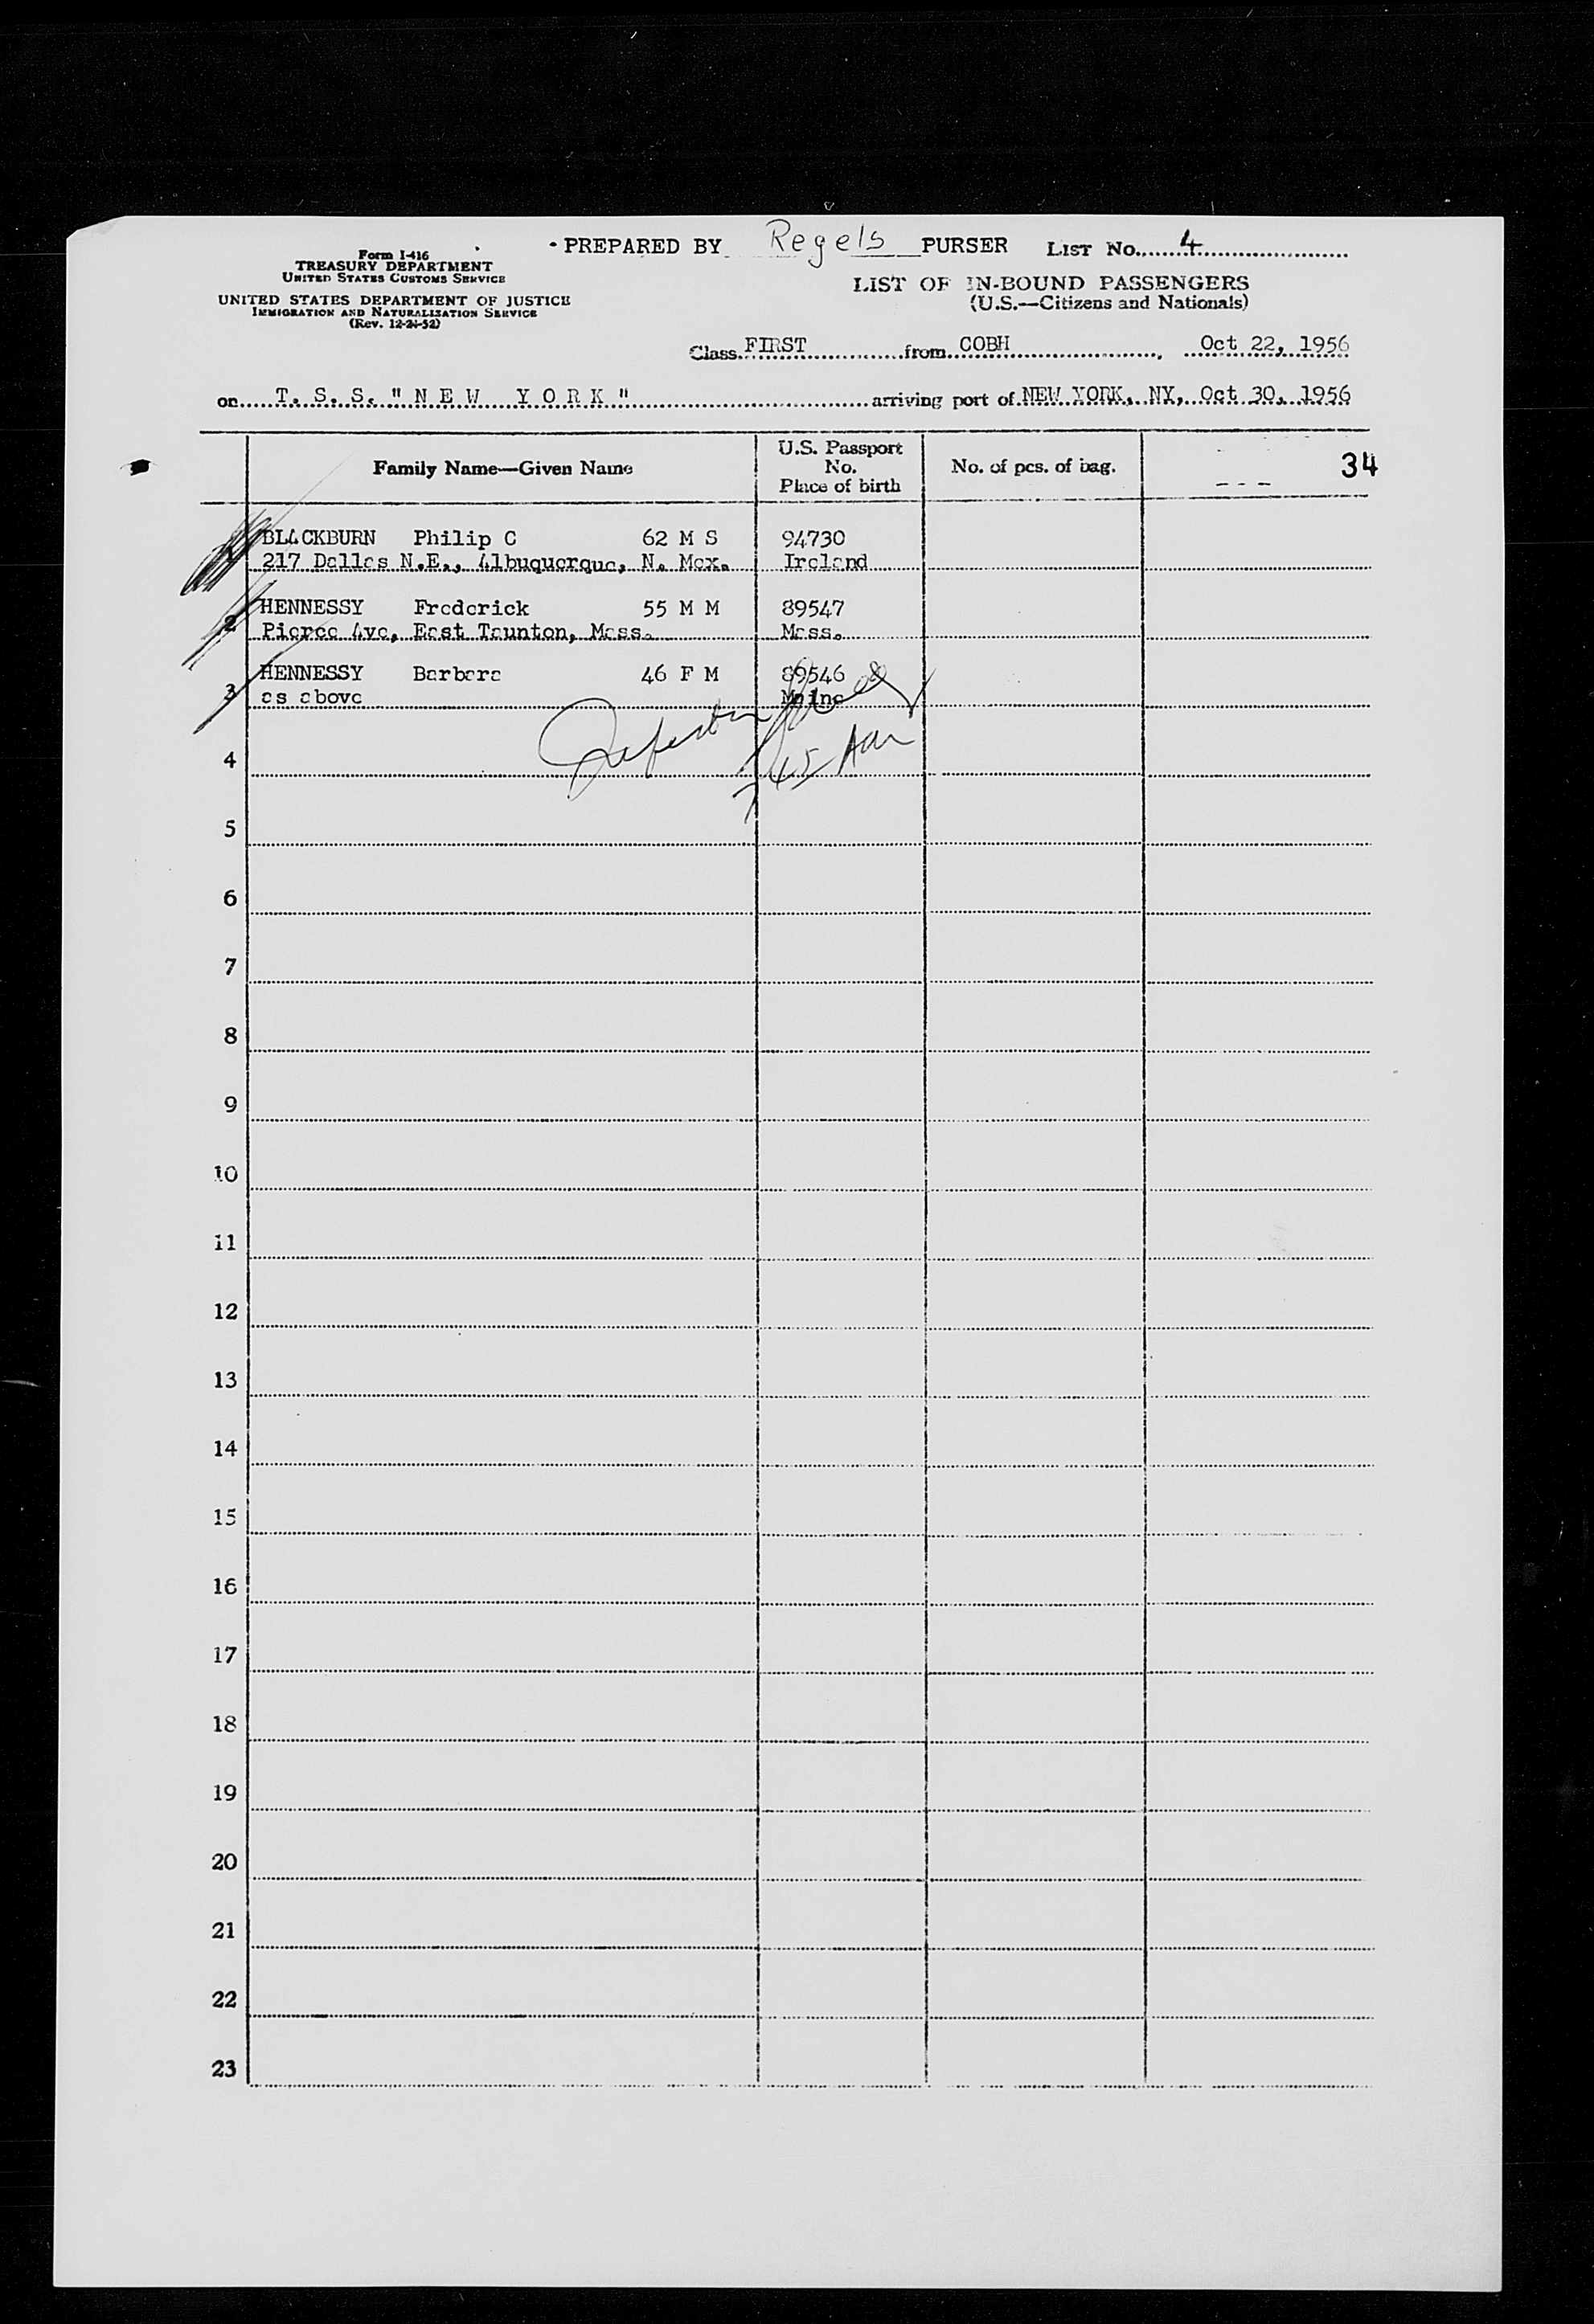 PREPARED BY Regels PURSER LIST No. 4
Form I-416
TREASURY DEPARTMENT
UNITED STATES CUSTOMS SERVICE
UNITED STATES DEPARTMENT OF JUSTICE
IMMIGRATION AND NATURALIZATION SERVICE
(Rev. 12-24-52)
LIST OF IN-BOUND PASSENGERS
(U.S.—Citizens and Nationals)
Class FIRST from COBH, Oct 22, 1956
on T. S. S. "NEW YORK" arriving port of NEW YORK, NY, Oct 30, 1956
Family Name—Given Name
U.S. Passport
No.
Place of birth
No. of pcs. of bag.
34
1 BLACKBURN Philip C 62 M S 94730
217 Dallas N.E., Albuquerque, N. Mex. Ireland
2 HENNESSY Frederick 55 M M 89547
Pierce Ave, East Taunton, Mass. Mass.
3 HENNESSY Barbara 46 F M 89546
as above Maine
745 Am
4
5
6
7
8
9
10
11
12
13
14
15
16
17
18
19
20
21
22
23